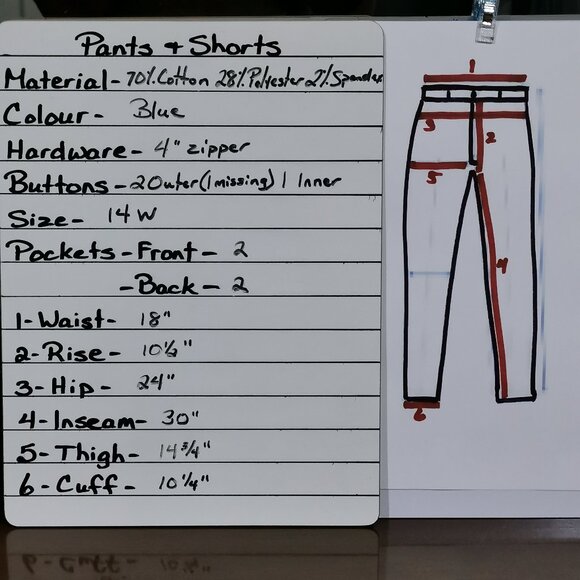 Pants & Shorts
Material - 70% Cotton 28% Polyester 2% Spandex
Colour - Blue
Hardware - 4" zipper
Buttons - 2 Outer (1 missing) 1 Inner
Size - 14 W
Pockets - Front - 2
- Back - 2
1 - Waist - 18"
2 - Rise - 10½"
3 - Hip - 24"
4 - Inseam - 30"
5 - Thigh - 14 3/4"
6 - Cuff - 10 1/4"
1
3
2
5
4
6